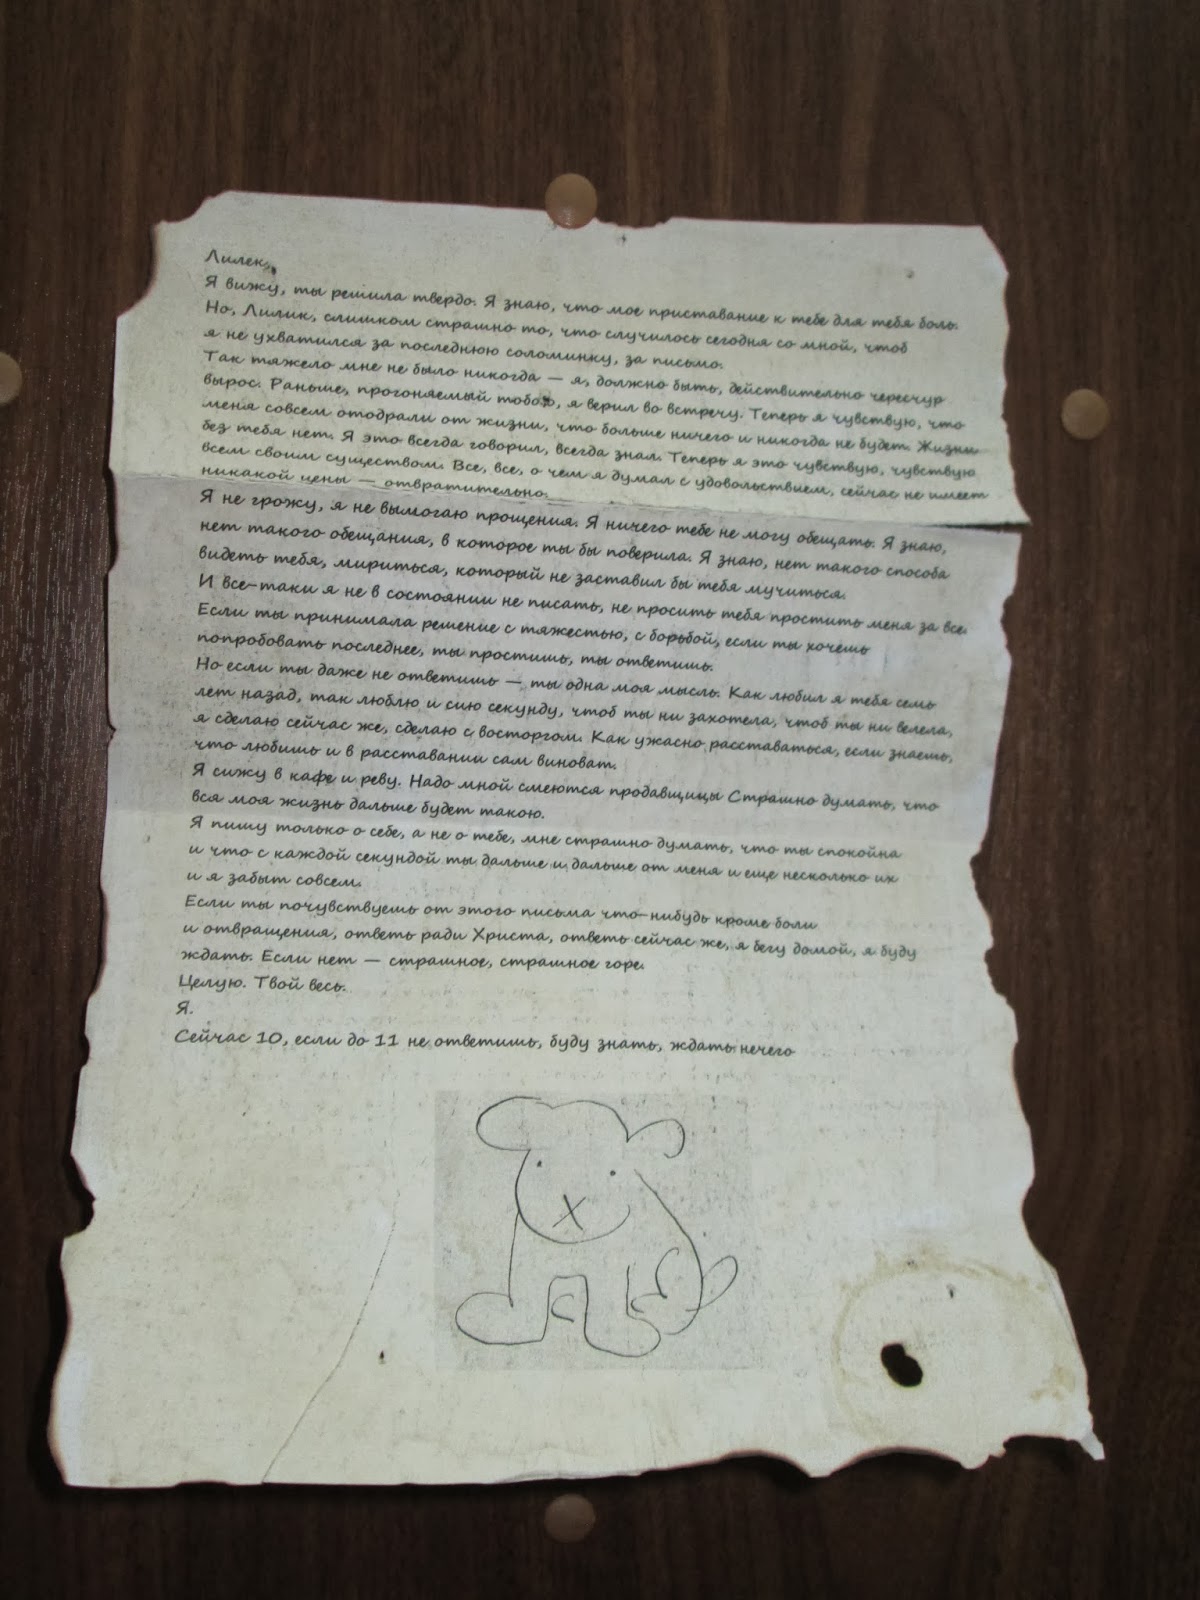 Лилек,
Я вижу, ты решила твердо. Я знаю, что мое приставание к тебе для тебя боль.
Но, Лилик, слишком страшно то, что случилось сегодня со мной, чтоб
я не ухватился за последнюю соломинку, за письмо.
Так тяжело мне не было никогда — я, должно быть, действительно чересчур
вырос. Раньше, прогоняемый тобою, я верил во встречу. Теперь я чувствую, что
меня совсем отодрали от жизни, что больше ничего и никогда не будет. Жизни
без тебя нет. Я это всегда говорил, всегда знал. Теперь я это чувствую, чувствую
всем своим существом. Все, все, о чем я думал с удовольствием, сейчас не имеет
никакой цены — отвратительно.
Я не грожу, я не вымогаю прощения. Я ничего тебе не могу обещать. Я знаю,
нет такого обещания, в которое ты бы поверила. Я знаю, нет такого способа
видеть тебя, мириться, который не заставил бы тебя мучиться.
И все-таки я не в состоянии не писать, не просить тебя простить меня за все.
Если ты принимала решение с тяжестью, с борьбой, если ты хочешь
попробовать последнее, ты простишь, ты ответишь.
Но если ты даже не ответишь — ты одна моя мысль. Как любил я тебя семь
лет назад, так люблю и сию секунду, чтоб ты ни захотела, чтоб ты ни велела,
я сделаю сейчас же, сделаю с восторгом. Как ужасно расставаться, если знаешь,
что любишь и в расставании сам виноват.
Я сижу в кафе и реву. Надо мной смеются продавщицы Страшно думать, что
вся моя жизнь дальше будет такою.
Я пишу только о себе, а не о тебе, мне страшно думать, что ты спокойна
и что с каждой секундой ты дальше и дальше от меня и еще несколько их
и я забыт совсем.
Если ты почувствуешь от этого письма что-нибудь кроме боли
и отвращения, ответь ради Христа, ответь сейчас же, я бегу домой, я буду
ждать. Если нет — страшное, страшное горе.
Целую. Твой весь.
Я.
Сейчас 10, если до 11 не ответишь, буду знать, ждать нечего